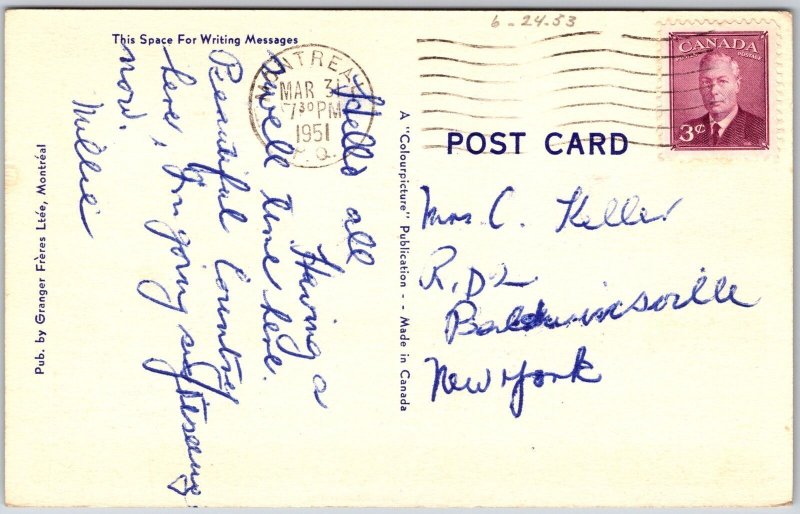 6-24.53
This Space For Writing Messages
MONTREAL
MAR 31
7 30 PM
1951
P.Q.
CANADA
POSTES POSTAGE
3¢
POST CARD
Hello all
Having a
swell time here.
Beautiful Country
here, I'm going
now.
Millie
Mrs. C. Keller
R.D 2
Baldwinsville
New York
A "Colourpicture" Publication - - Made in Canada
Pub. by Granger Frères Ltée, Montréal